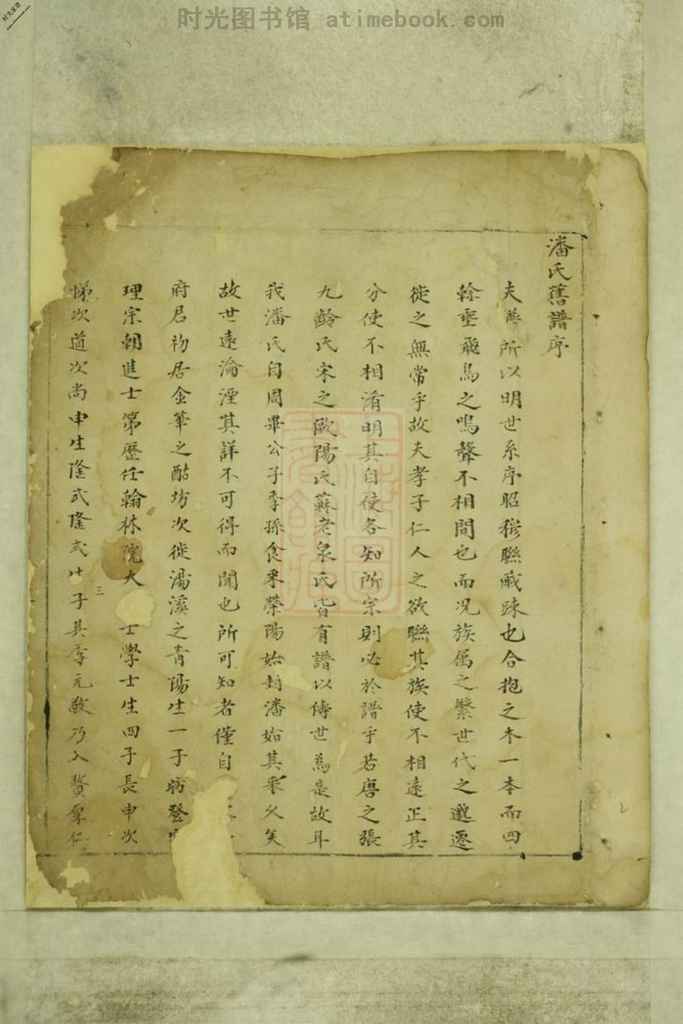 时光图书馆 atimebook.com
潘氏舊譜序
夫譜所以明世系序昭穆聯戚踈也合抱之木一本而四
餘里飛鳥之鳴聲不相聞也而况族屬之繁世代之遞遷
徙之無常乎故夫孝子仁人之欲聯其族使不相遠正其
分使不相淆明其自使各知所宗則必於譜乎若唐之張
九齡氏宋之歐陽氏蘇老泉氏皆有譜以傳世為是故耳
我潘氏自周畢公子季孫食采滎陽始封潘始其來久矣
故世遠淪湮其詳不可得而聞也所可知者僅自
府君初居金華之酤坊次徙湯溪之青陽生一子昉登
理宗朝進士第歷任翰林院大 士學士生四子長申次
悌次道次尚申生隆式隆式 子其季元 乃入贅 仁